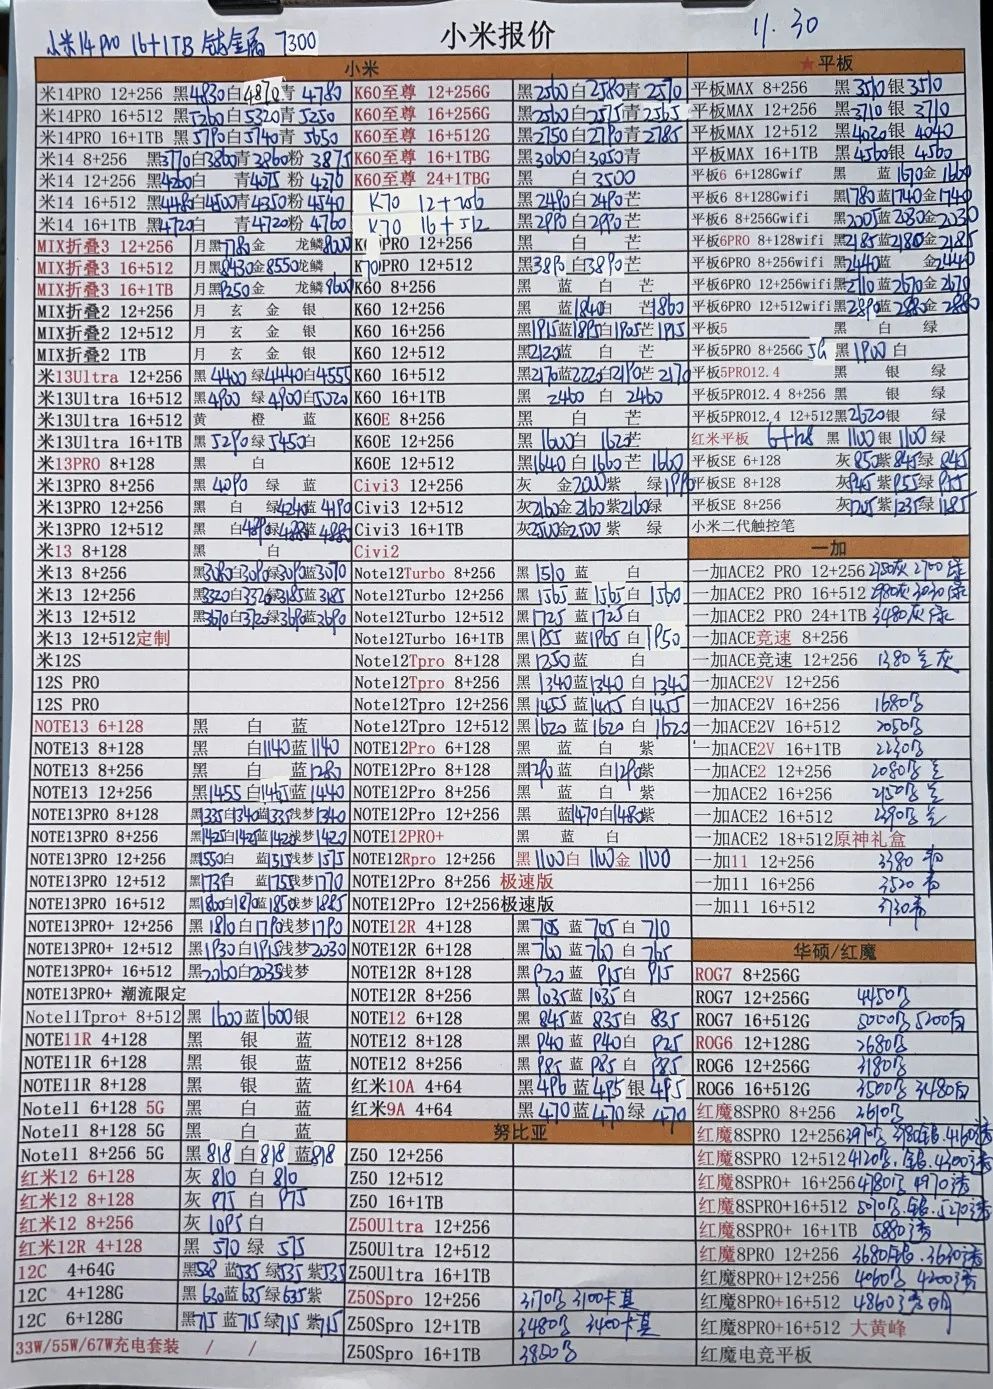 小米14 pro 16+1TB 钛金属 7300
小米报价
11.30
小米
米14PRO 12+256 黑4830白4870青 4780
米14PRO 16+512 黑5260白5320青5250
米14PRO 16+1TB 黑5790白5740青5650
米14 8+256 黑3770白3860青3860粉 3875
米14 12+256 黑4260白 青4075粉 4270
米14 16+512 黑4480白4500青4350粉 4540
米14 16+1TB 黑4720白 青4720粉 4760
MIX折叠3 12+256 月黑7780金 龙鳞8000
MIX折叠3 16+512 月黑8430金8550龙鳞
MIX折叠3 16+1TB 月黑9250金 龙鳞9600
MIX折叠2 12+256 月 玄 金 银
MIX折叠2 12+512 月 玄 金 银
MIX折叠2 1TB 月 玄 金 银
米13Ultra 12+256 黑 4400 绿4440白4555
米13Ultra 16+512 黑4900 绿4900白5020
米13Ultra 16+512 黄 橙 蓝
米13Ultra 16+1TB 黑5290绿5450白
米13PRO 8+128 黑 白
米13PRO 8+256 黑 4090 绿 蓝
米13PRO 12+256 黑 白 绿4240蓝4190
米13PRO 12+512 黑 白4890绿4880蓝4880
米13 8+128 黑 白
米13 8+256 黑3080白3090绿3090蓝3070
米13 12+256 黑3320白3320绿3185蓝3185
米13 12+512 黑3670白3720绿3690蓝3690
米13 12+512定制
米12S
12S PRO
12S PRO
NOTE13 6+128 黑 白 蓝
NOTE13 8+128 黑 白1140蓝1140
NOTE13 8+256 黑 白 蓝1280
NOTE13 12+256 黑1455白1465蓝1440
NOTE13PRO 8+128 黑1335白1340蓝1335浅梦1340
NOTE13PRO 8+256 黑1425白1425蓝1420浅梦1420
NOTE13PRO 12+256 黑1550白 蓝1515浅梦1575
NOTE13PRO 12+512 黑1735白 蓝1755浅梦1770
NOTE13PRO 16+512 黑1860白1870蓝1850浅梦1885
NOTE13PRO+ 12+256 黑 1810白1790浅梦1790
NOTE13PRO+ 12+512 黑1930白1915浅梦2030
NOTE13PRO+ 16+512 黑2060白2035浅梦
NOTE13PRO+ 潮流限定
Note11Tpro+ 8+512 黑 1600蓝1600银
NOTE11R 4+128 黑 银 蓝
NOTE11R 6+128 黑 银 蓝
NOTE11R 8+128 黑 银 蓝
Note11 6+128 5G 黑 白 蓝
Note11 8+128 5G 黑 白 蓝
Note11 8+256 5G 黑 818 白 818 蓝818
红米12 6+128 灰 810 白 810
红米12 8+128 灰 975 白 975
红米12 8+256 灰 1095白
红米12R 4+128 黑 570 绿 575
12C 4+64G 黑528 蓝535 绿535 紫535
12C 4+128G 黑630蓝635绿635紫
12C 6+128G 黑715 蓝715 绿715 紫715
33W/55W/67W充电套装 / /
K60至尊 12+256G 黑2560白2580青2570
K60至尊 16+256G 黑2560白2575青2565
K60至尊 16+512G 黑2750白2790青2785
K60至尊 16+1TBG 黑3060白3050青
K60至尊 24+1TBG 黑 白 3500
K70 12+256 黑2490白2490芒
K70 16+512 黑2990白2990芒
PRO 12+256 黑 白 芒
K70PRO 12+512 黑3890白3890芒
K60 8+256 黑 蓝 白 芒
K60 12+256 黑 蓝1840白 芒1860
K60 16+256 黑1915蓝1895白1905芒1915
K60 12+512 黑2120蓝 白 芒
K60 16+512 黑2170蓝2220白2190芒2170
K60 16+1TB 黑 2460 白 2460
K60E 8+256 黑 白 芒
K60E 12+256 黑1600白1620芒
K60E 12+512 黑1640白1660芒1660
Civi3 12+256 灰 金2000紫 绿1990
Civi3 12+512 灰2160金2160紫2160绿
Civi3 16+1TB 灰2500金2500紫 绿
Civi2
Note12Turbo 8+256 黑1510蓝 白
Note12Turbo 12+256 黑1565蓝1565白1560
Note12Turbo 12+512 黑1725蓝1725白
Note12Turbo 16+1TB 黑1955蓝1965白1950
Note12Tpro 8+128 黑1250蓝 白
Note12Tpro 8+256 黑 1340蓝1340 白 1340
Note12Tpro 12+256 黑1455 蓝1455白1455
Note12Tpro 12+512 黑1620 蓝1620 白 1620
NOTE12Pro 6+128 黑 蓝 白 紫
NOTE12Pro 8+128 黑1290蓝 白1290紫
NOTE12Pro 8+256 黑 蓝 白 紫
NOTE12Pro 12+256 黑 蓝1470白1480紫
NOTE12PRO+ 黑 蓝 白
NOTE12Rpro 12+256 黑1100白 1100金 1100
NOTE12Pro 8+256 极速版
NOTE12Pro 12+256极速版
NOTE12R 4+128 黑 705 蓝 705 白 710
NOTE12R 6+128 黑760 蓝760 白 765
NOTE12R 8+128 黑920 蓝915白 915
NOTE12R 8+256 黑1035蓝1035白
NOTE12 6+128 黑 845 蓝 835白 835
NOTE12 8+128 黑 940 蓝940白 925
NOTE12 8+256 黑985 蓝 985 白 985
红米10A 4+64 黑496 蓝495银 495
红米9A 4+64 黑470蓝470绿 470
努比亚
Z50 12+256
Z50 12+512
Z50 16+1TB
Z50Ultra 12+256
Z50Ultra 12+512
Z50Ultra 16+1TB
Z50Spro 12+256 3170 3100卡其
Z50Spro 12+1TB 3480 3400卡其
Z50Spro 16+1TB 3850
★平板
平板MAX 8+256 黑 3510银3510
平板MAX 12+256 黑3710银 3710
平板MAX 12+512 黑4020银 4040
平板MAX 16+1TB 黑4560银 4560
平板6 6+128Gwif 黑 蓝 1670金1660
平板6 8+128Gwifi 黑1780蓝1740金1740
平板6 8+256Gwifi 黑2005蓝2030金2030
平板6PRO 8+128wifi 黑2185蓝2180金2185
平板6PRO 8+256wifi 黑2440蓝 金2440
平板6PRO 12+256wifi黑2710蓝2670金2670
平板6PRO 12+512wifi黑2890蓝2880金2880
平板5 黑 白 绿
平板5PRO 8+256G 5G 黑1900白
平板5PRO12.4 黑 银 绿
平板5PRO12.4 8+256 黑 银 绿
平板5PRO12.4 12+512黑2620银 绿
红米平板 6+128 黑 1100银1100绿
平板SE 6+128 灰850紫845绿845
平板SE 8+128 灰945紫955绿955
平板SE 8+256 灰1205紫1235绿1185
小米二代触控笔
一加
一加ACE2 PRO 12+256 2750灰 2700绿
一加ACE2 PRO 16+512 2980灰3030绿
一加ACE2 PRO 24+1TB 3480灰绿
一加ACE竞速 8+256
一加ACE竞速 12+256 1380 灰
一加ACE2V 12+256
一加ACE2V 16+256 1680
一加ACE2V 16+512 2050
一加ACE2V 16+1TB 2230
一加ACE2 12+256 2080
一加ACE2 16+256 2150
一加ACE2 16+512 2290
一加ACE2 18+512原神礼盒
一加11 12+256 3380
一加11 16+256 3520
一加11 16+512 3730
华硕/红魔
ROG7 8+256G
ROG7 12+256G 4450
ROG7 16+512G 5000 5200
ROG6 12+128G 2680
ROG6 12+256G 3180
ROG6 16+512G 3500 3480
红魔8SPRO 8+256 2610
红魔8SPRO 12+256 3970 银 4160透
红魔8SPRO 12+512 4120 银 4300透
红魔8SPRO+ 16+256 4780 4970透
红魔8SPRO+16+512 5070 银 5270透
红魔8SPRO+ 16+1TB 5880透
红魔8PRO 12+256 3680 3630透
红魔8PRO+12+256 4060 4200透
红魔8PRO+16+512 4860透明
红魔8PRO+16+512 大黄峰
红魔电竞平板